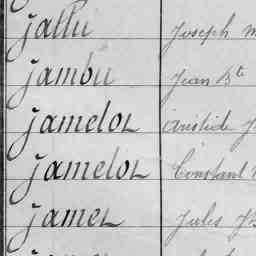 Jallu Joseph M
Jambu Jean Bte
Jamelot Aristide J
Jamelot Constant
Jamet Jules